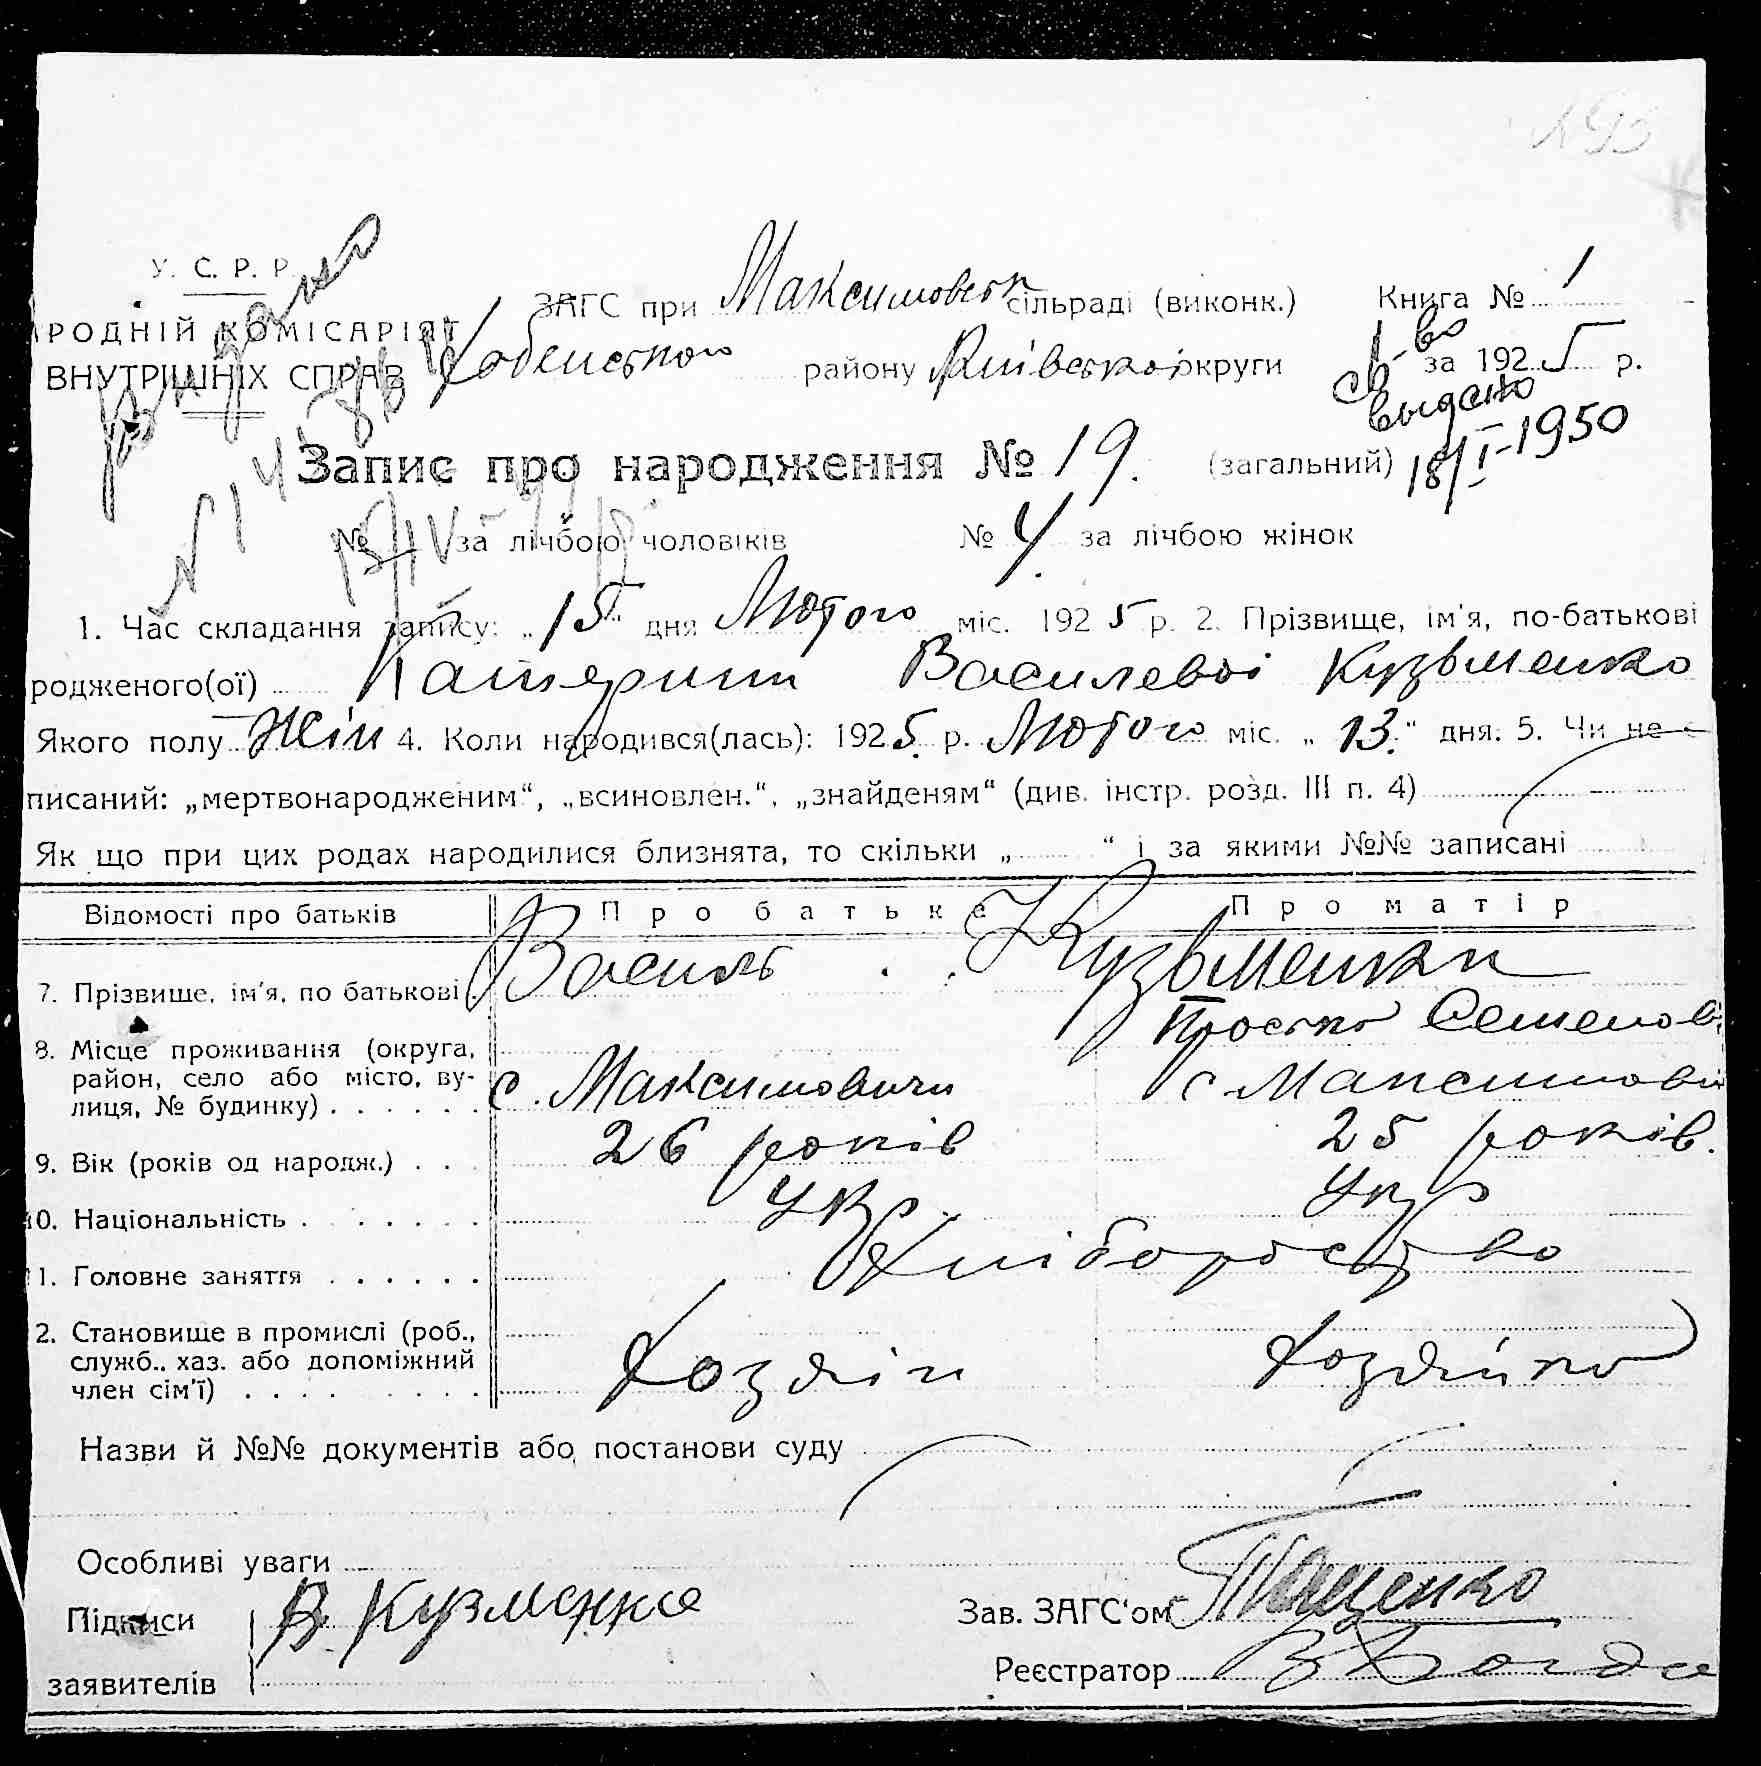 У. С. Р. Р.
РОДНІЙ КОМІСАРІЯТ
ВНУТРІШНІХ СПРАВ
ЗАГС при Максимовськ сільраді (виконк.) Книга № 1
Хабенського району Київської округи за 1925 р.
св-во
выдано
18/I-1950
Запис про народження № 19. (загальний)
№ за лічбою чоловіків № 4 за лічбою жінок
1. Час складання запису: „15“ дня Лютого міс. 1925 р. 2. Прізвище, ім'я, по-батькові
родженого(ої) Катерини Василевої Кузьменко
Якого полу Жін 4. Коли народився(лась): 1925 р. Лютого міс. „13.“ дня. 5. Чи не є
писаний: „мертвонародженим“, „всиновлен.“, „знайденям“ (див. інстр. розд. III п. 4)
Як що при цих родах народилися близнята, то скільки „ “ і за якими №№ записані
Відомості про батьків Про батька Про матір
7. Прізвище, ім'я, по батькові Василь Кузьменки
Проська Семенов
8. Місце проживання (округа,
район, село або місто, ву-
лиця, № будинку) . . . . . . с. Максимовичи с Максимови
9. Вік (років од народж.) . . . 26 років 25 років.
10. Національність . . . . . . . Укр. Укр
11. Головне заняття . . . . . . Хліборобство
2. Становище в промислі (роб.,
служб., хаз. або допоміжний
член сім'ї) . . . . . . . . . Хозяїн Хозяйка
Назви й №№ документів або постанови суду
Особливі уваги
Підписи В. Кузменко Зав. ЗАГС'ом
заявителів Реєстратор